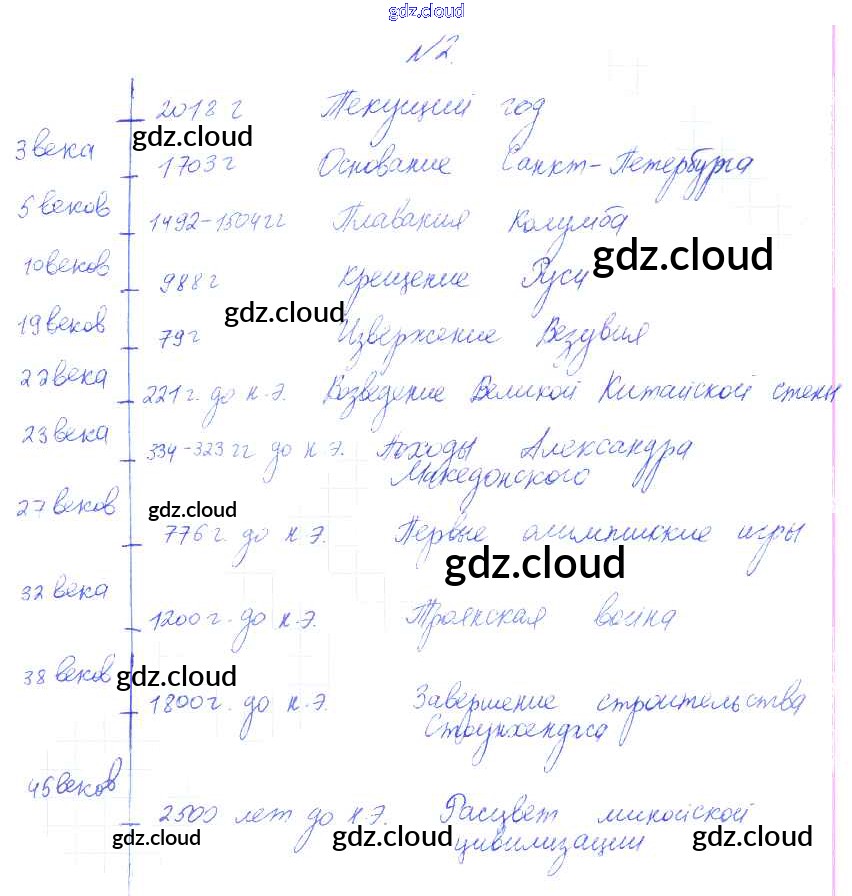 gdz.cloud
№2.
2018 г Текущий год
gdz.cloud
3 века
1703 г Основание Санкт-Петербурга
5 веков
1492-1504 гг Плавания Колумба
gdz.cloud
10 веков
988 г Крещение Руси
gdz.cloud
19 веков
79 г Извержение Везувия
22 века
221 г. до н.э. Возведение Великой Китайской стены
23 века
334-323 гг до н.э. Походы Александра
Македонского
27 веков
gdz.cloud
776 г. до н.э. Первые олимпийские игры
gdz.cloud
32 века
1200 г. до н.э. Троянская война
38 веков
gdz.cloud
1800 г. до н.э. Завершение строительства
Стоунхенджа
45 веков
2500 лет до н.э. Расцвет минойской
цивилизации
gdz.cloud gdz.cloud gdz.cloud